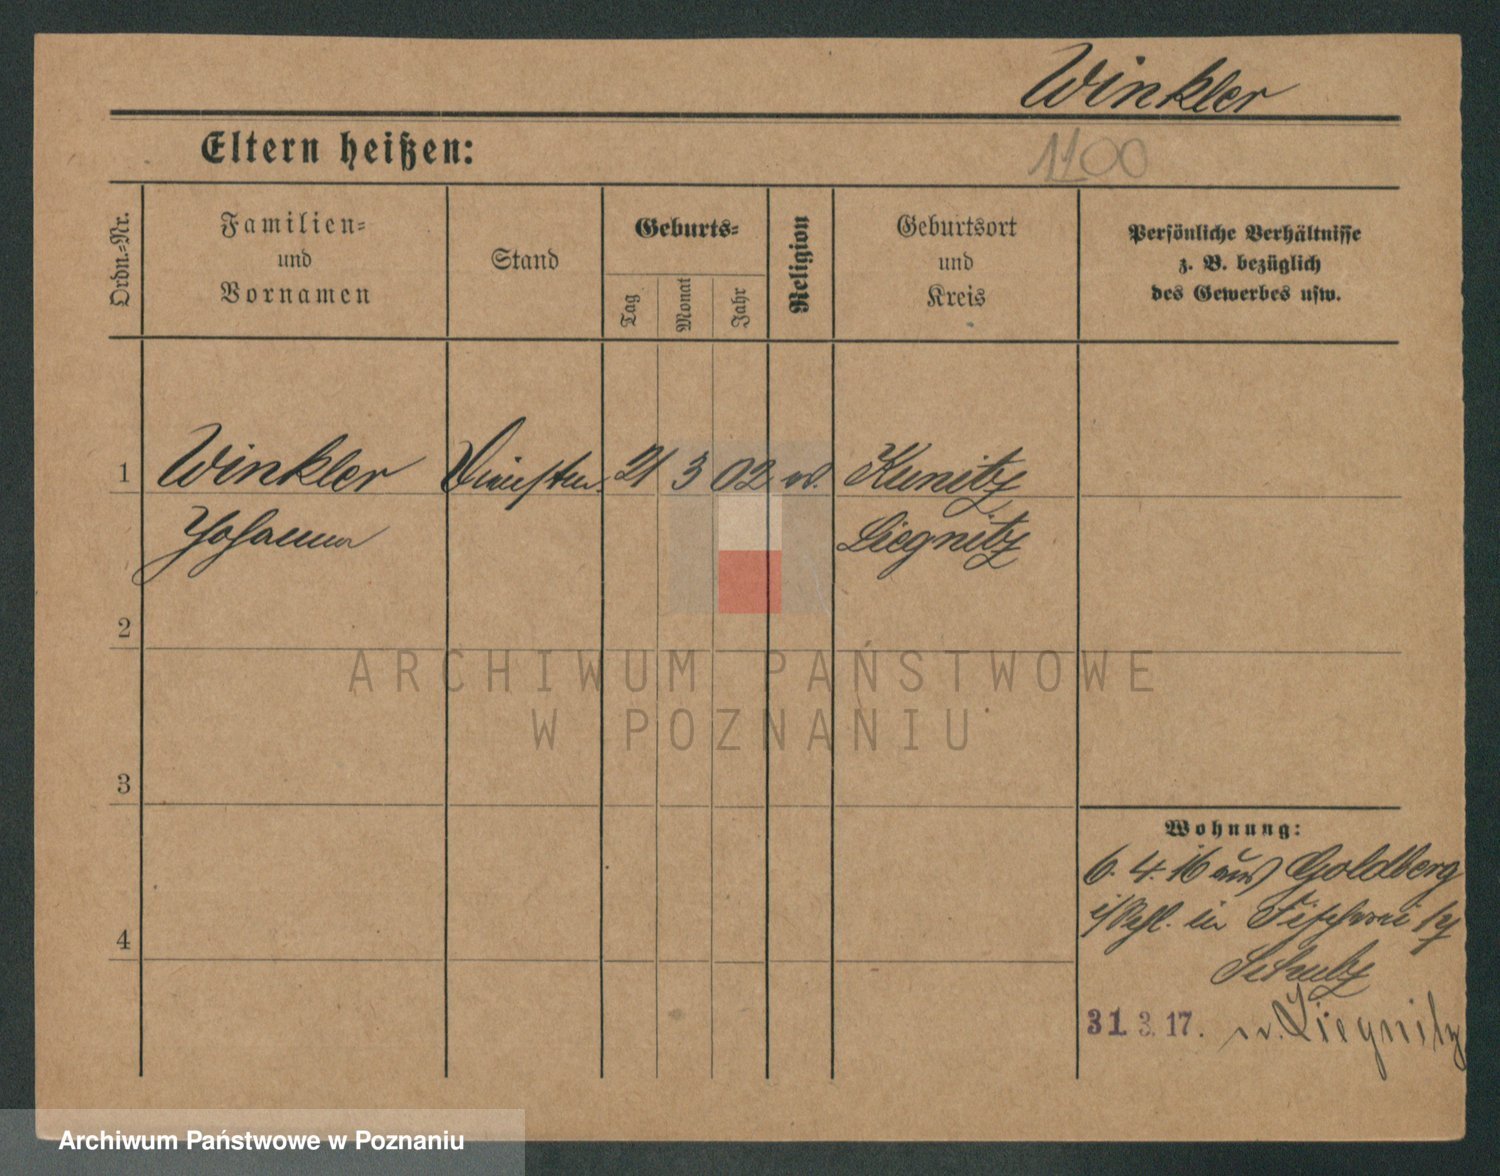 Winkler
Eltern heißen:
1100
Ordn.-Nr.
Familien-
und
Vornamen
Stand
Geburts-
Tag
Monat
Jahr
Religion
Geburtsort
und
Kreis
Persönliche Verhältnisse
z. B. bezüglich
des Gewerbes usw.
1 Winkler 21 3 02 Kunitz
Johanna Liegnitz
2
3
4
Wohnung:
6. 4. 16 aus Goldberg
i/Schl. in
Schulz
31. 3. 17. n. Liegnitz
ARCHIWUM PAŃSTWOWE
W POZNANIU
Archiwum Państwowe w Poznaniu